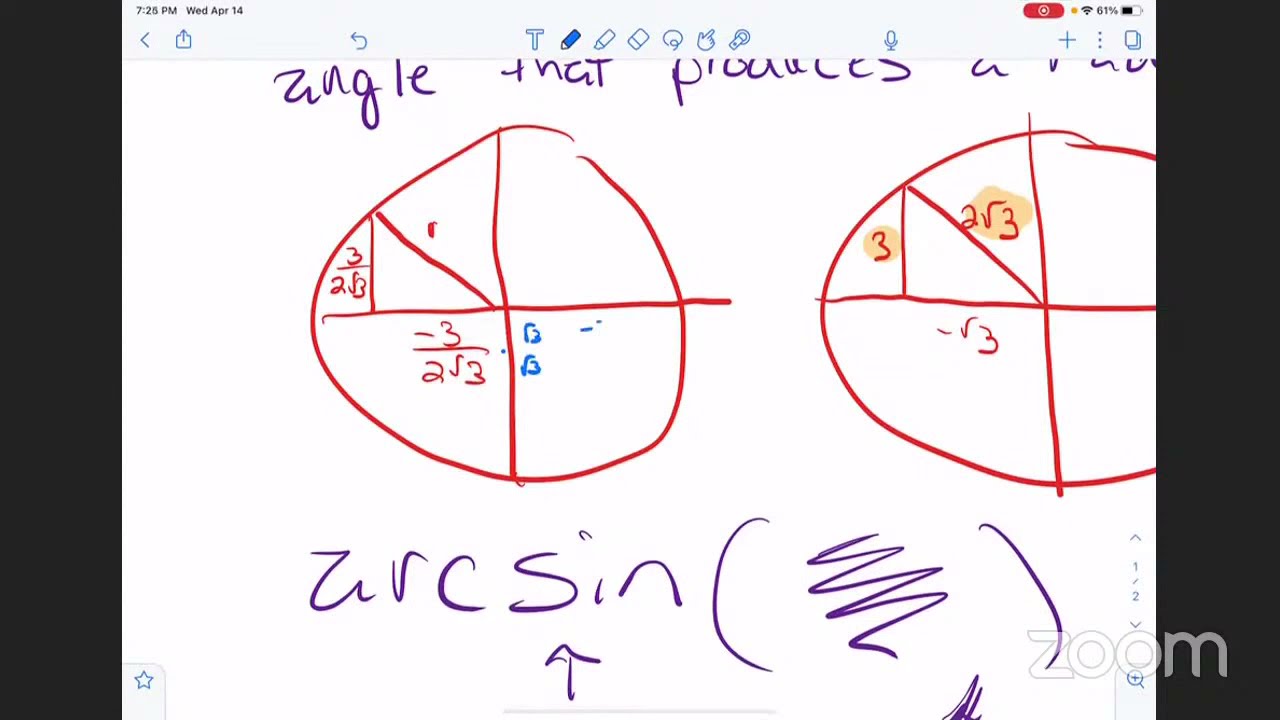 7:26 PM Wed Apr 14
61%
angle that produces a
r
3/2√3
-3/2√3 · √3/√3 -
3
2√3
-√3
arcsin( )
1/2
zoom